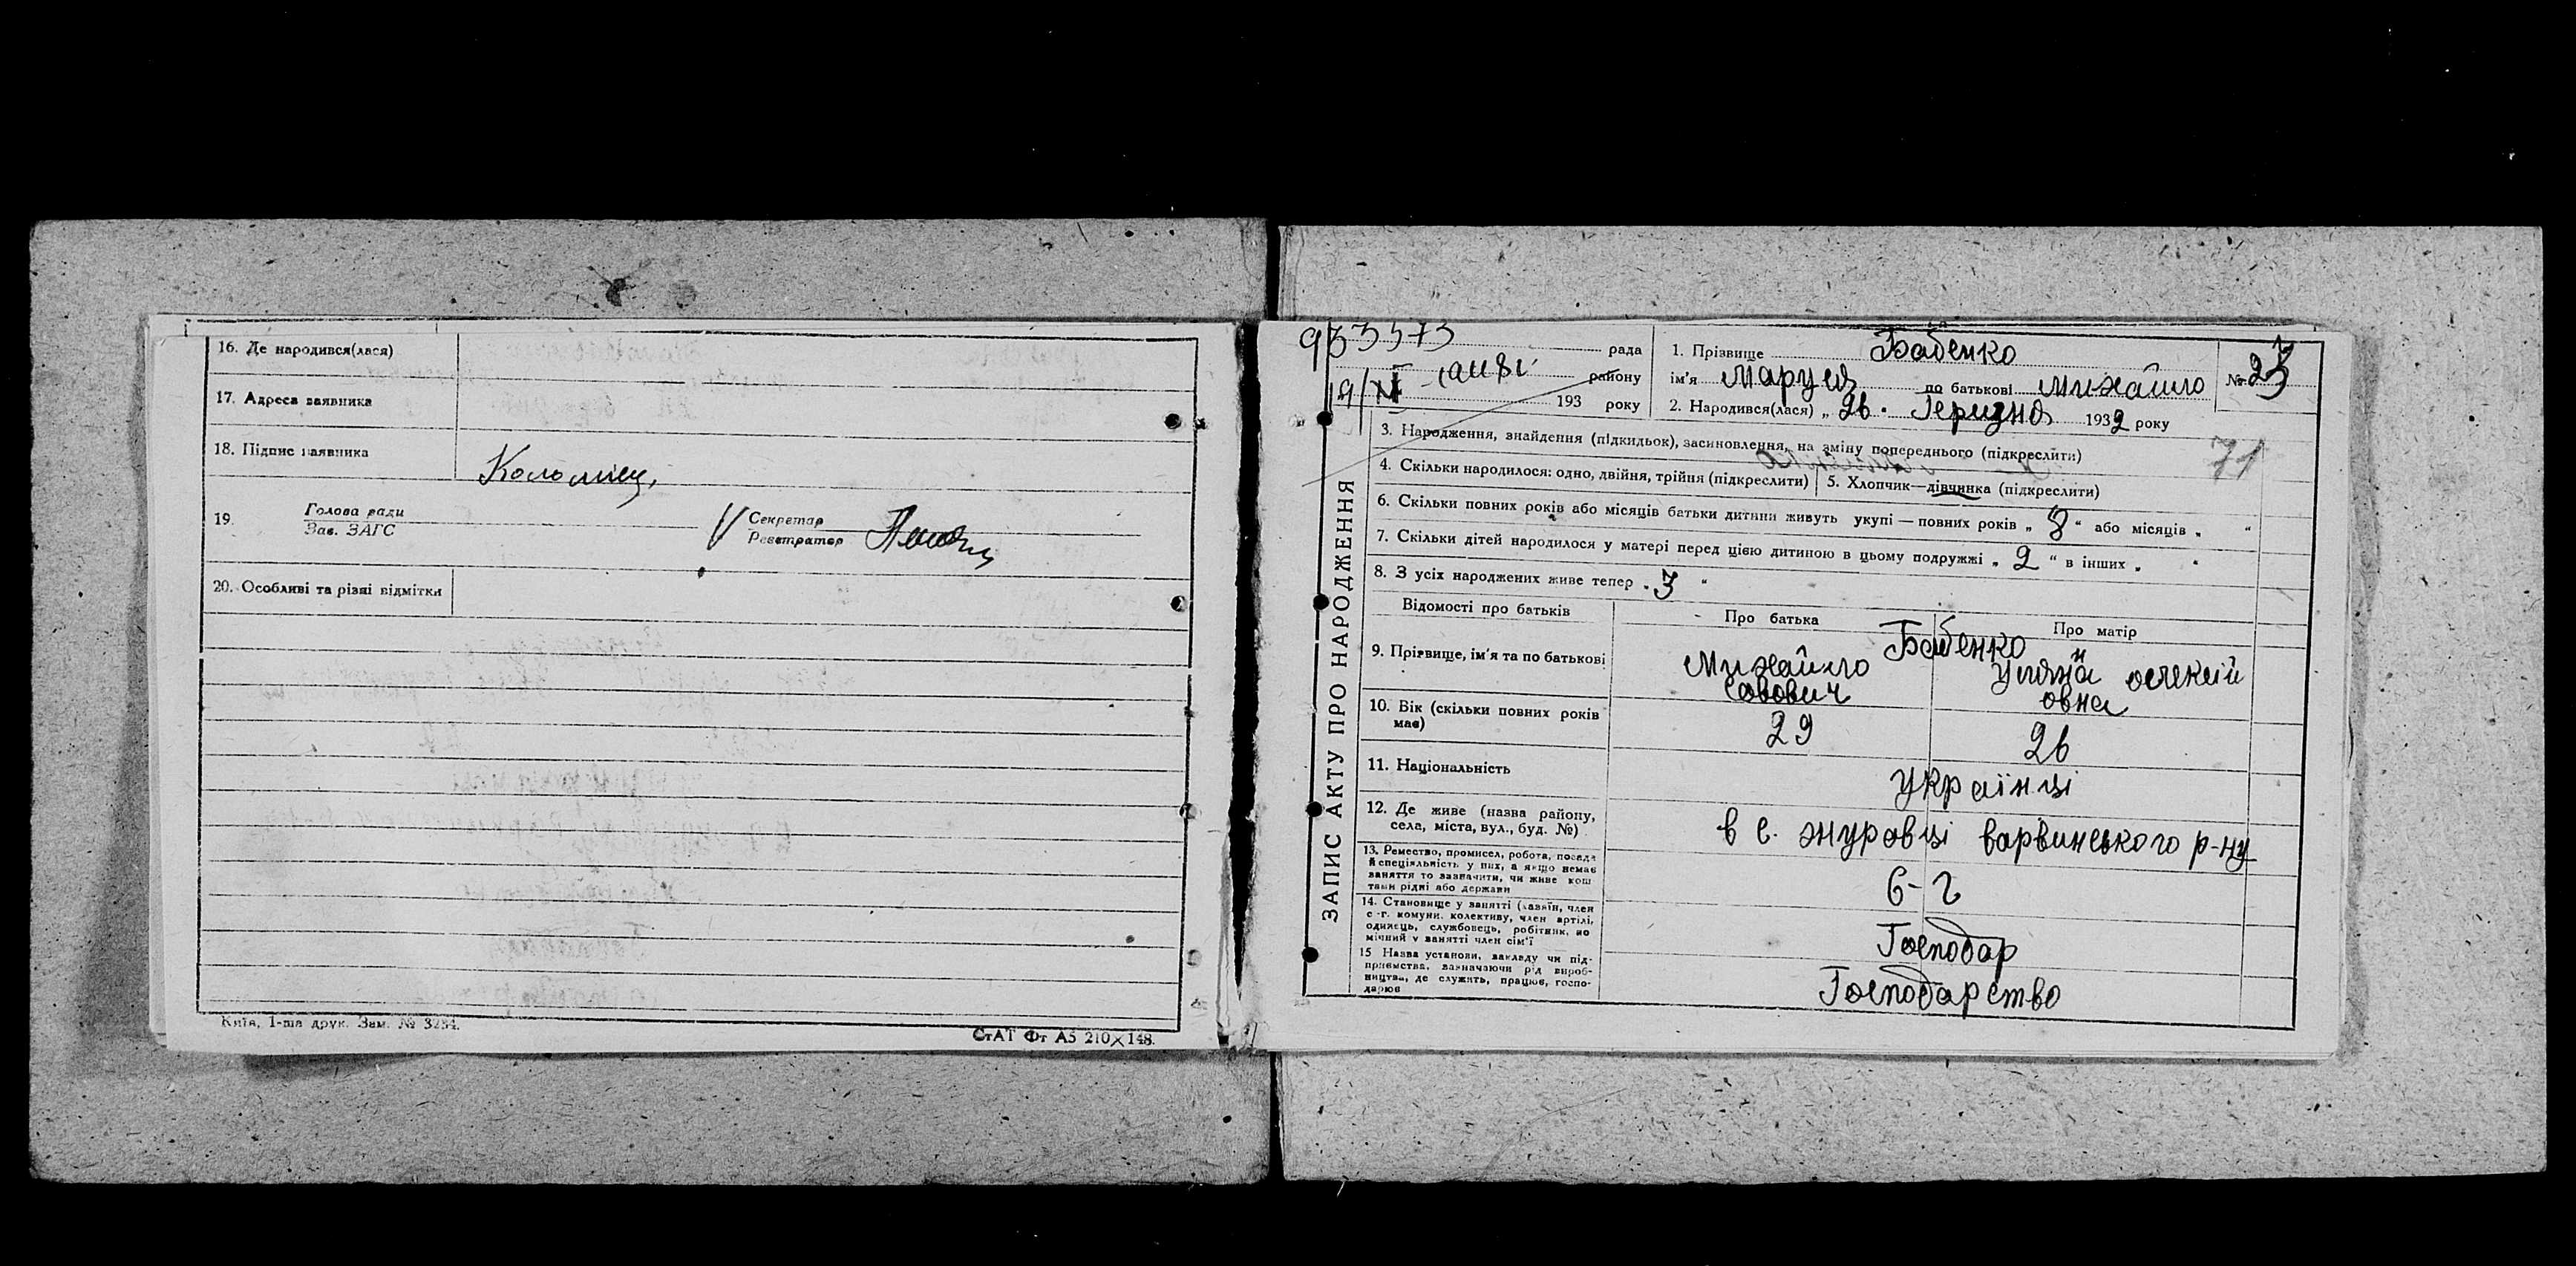 16. Де народився(лася)
17. Адреса заявника
18. Підпис заявника
Коломієц
19.
Голова ради
Зав. ЗАГС
Секретар
Реєстратор
20. Особливі та різні відмітки
Київ, 1-ша друк. Зам. № 3254.
СтАТ Фт А5 210×148.
ЗАПИС АКТУ ПРО НАРОДЖЕННЯ
933573
рада
району
193 року
1. Прізвище Бабенко
ім'я Маруся по батькові Михайло
2. Народився(лася) „ 26. 1932 року
№ 23
71
3. Народження, знайдення (підкидьок), засиновлення, на зміну попереднього (підкреслити)
4. Скільки народилося: одно, двійня, трійня (підкреслити) 5. Хлопчик—дівчинка (підкреслити)
6. Скільки повних років або місяців батьки дитини живуть укупі — повних років „ 8 “ або місяців „ “
7. Скільки дітей народилося у матері перед цією дитиною в цьому подружжі „ 2 “ в інших „ “
8. З усіх народжених живе тепер „ 3 “
Відомості про батьків
Про батька
Про матір
9. Прізвище, ім'я та по батькові
Бабенко
Михайло
Савович
Уляна Олексій
овна
10. Вік (скільки повних років
має)
29
26
11. Національність
Українці
12. Де живе (назва району,
села, міста, вул., буд. №)
в с. Журавці Варвинського р-ну
13. Ремество, промисел, робота, посада
й спеціяльність у них, а якщо немає
заняття то зазначити, чи живе кош
тами рідні або держави
С-Г
14. Становище у занятті (хазяїн, член
с.-г. комуни, колективу, член артілі,
одинець, службовець, робітник, по
мічний у занятті член сім'ї
Господар
15 Назва установи, закладу чи під-
приємства, зазначаючи рід вироб-
ництва, де служить, працює, госпо-
дарює
Господарство